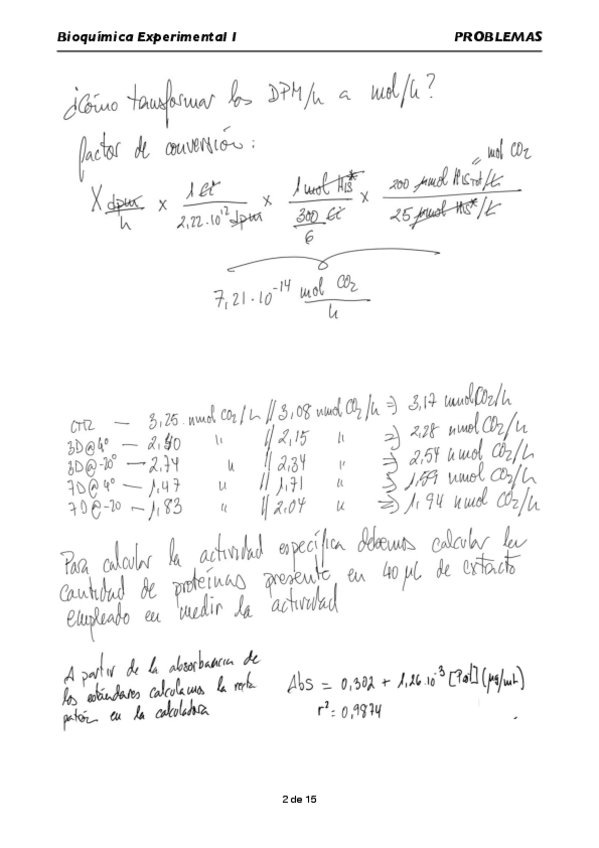 Bioquímica Experimental I PROBLEMAS
¿Cómo transformar los DPM/h a mol/h?
factor de conversión:
= mol CO2
X dpm/h × 1 Ci/2,22·10^12 dpm × 1 mol His*/(300 Ci/6) × 200 μmol His Tot/t/25 μmol His*/t
7,21·10^-14 mol CO2/h
CTRL — 3,25 nmol CO2/h // 3,08 nmol CO2/h => 3,17 nmol CO2/h
3D@4° — 2,40 " // 2,15 " => 2,28 nmol CO2/h
3D@-20° — 2,74 " // 2,34 " => 2,54 nmol CO2/h
7D@4° — 1,47 " // 1,71 " => 1,59 nmol CO2/h
7D@-20 — 1,83 " // 2,04 " => 1,94 nmol CO2/h
Para calcular la actividad específica debemos calcular la
cantidad de proteínas presente en 40 μL de extracto
empleado en medir la actividad
A partir de la absorbancia de
los estándares calculamos la recta
patrón en la calculadora
Abs = 0,302 + 1,26·10^-3 [Prot] (μg/mL)
r² = 0,9874
2 de 15